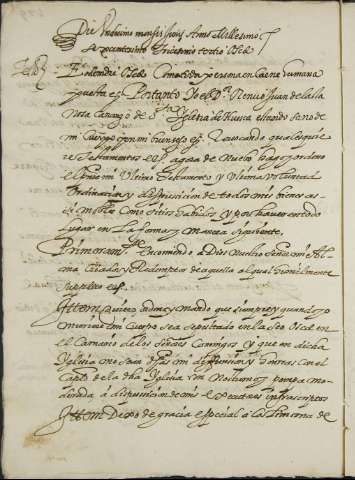 Die Undecimo mensis Junij Anno Millesimo
sexcentesimo tricesimo tertio Osce
Eodem die Osce Como toda persona en carne humana
puesta etc Portanto Yo el D.r Nonçio Juan de la
Nota Canonigo de S.ta Iglesia de Huesca estando sano de
mi cuerpo y en mi buen seso etc Revocando qualesquie
re Testamentos etc agora de Nuevo hago y ordeno
el ultimo Testamento y Ultima voluntad
Ordinacion y disposicion de todos mis bienes as-
si muebles como sitios habidos y por haver en todo
lugar en la forma y manera siguiente
Primeram.te Encomiendo a Dios Nuestro Señor mi Al
ma Criador y Redemptor de aquella al qual humilmente
suplico etc
Ittem Quiero ordeno y mando que siempre y quando yo
muriere mi cuerpo sea sepultado en la Seo Osce en
el Carnario de los Señores Canonigos y que en dicha
Iglesia me sean hechas mi deffunsion y honras con el
Cap.lo de la dha Iglesia con Nocturnos y pompa mo
derada a disposicion de mis executores infrascriptos
Ittem Dexo de gracia especial a la limosna de